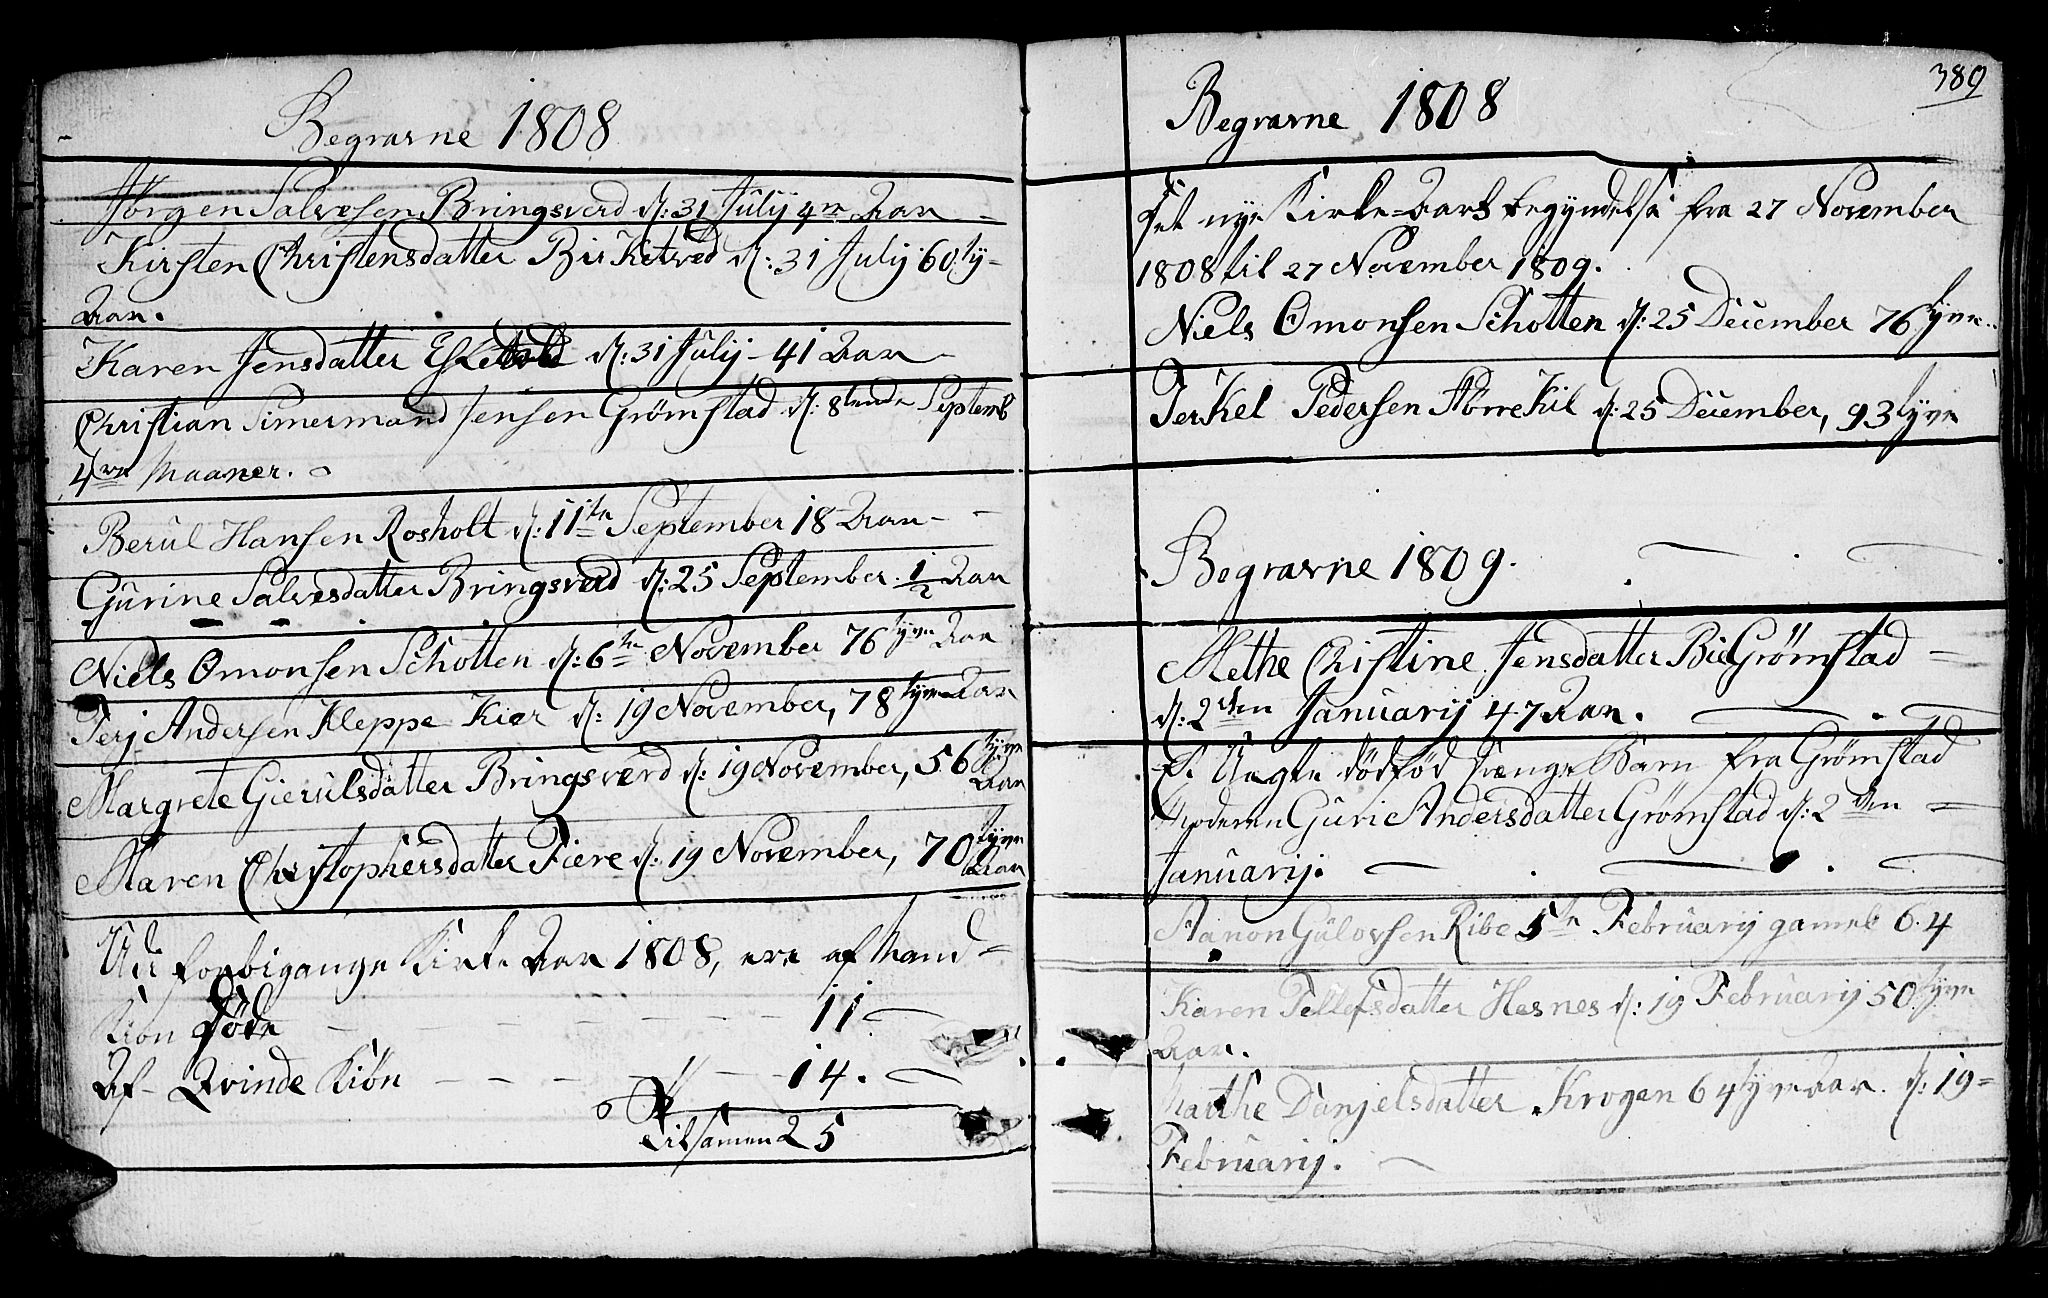 Begravne 1808
Jörgen Salvesen Bringsverd d: 31 Julij 4re Aar
Kirsten Christensdatter Birketved d: 31 Julij 60ty-
Aar.
Karen Jensdatter d: 31 Julij - 41 Aar
Christian Simermand Jensen Grømstad d: 8tende Septemb
4re Maaner.
Berul Hansen Rosholt d: 11te September 18 Aar -
Gurine Salvesdatter Bringsverd d: 25 September 1/2 Aar
Niels Omonsen Schotten d: 6te November 76tyve Aar
Terj Andersen Kleppe Kier d: 19 November, 78tyve Aar
Margrete Gierulsdatter Bringsverd d: 19 November, 56tyve
Aar
Maren Christophersdatter Fiere d: 19 November, 70tyve
Aar
Udi forbigangne Kirke Aar 1808, ere af Mand-
Kiøn Døde - - - - - - 11
Af Qvinde Kiøn - - - - - 14.
Tilsamen 25
389
Begravne 1808
Det nye Kirke-Aars begyndelse fra 27 November
1808 til 27 November 1809.
Niels Omonsen Schotten d: 25 December 76tyve
Terkel Pedersen Størrekil d: 25 December, 93tyve
Begravne 1809.
Methe Christine Jensdatter Bie Grømstad
d: 2den Januarij 47 Aar.
Et Uægte dödföd Drenge Barn fra Grømstad
Moderen Guri Andersdatter Grømstad d: 2den
Januarij.
Aanon Gulovsen Ribe 5te Februarij gamel 64
Karen Tellefsdatter Hesnes d: 19 Februarij 50tyve
Aar.
Marthe Danjelsdatter Krogen 64tyve Aar. d: 19-
Februarij.